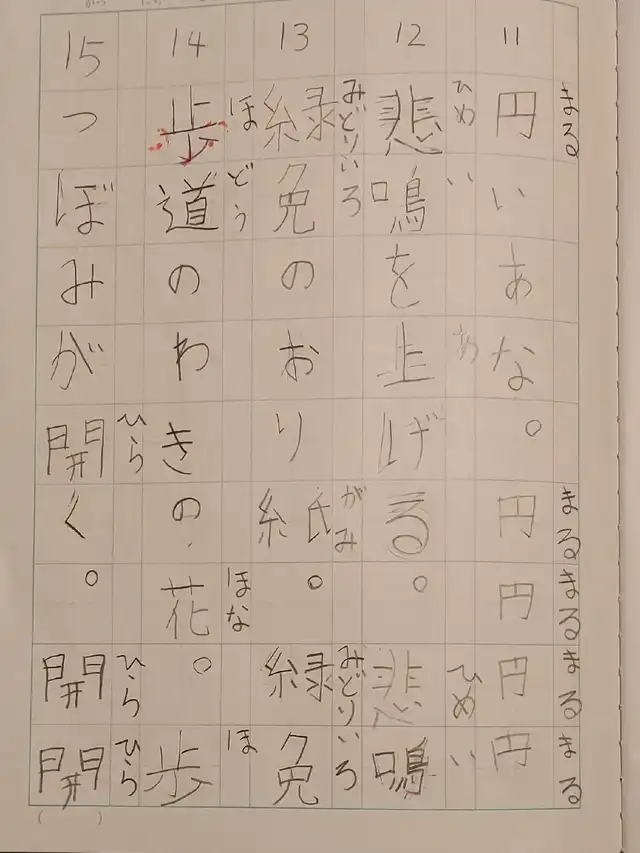 11
まる まる まる まる まる
円いあな。円円円円
12
ひめい あ ひめい
悲鳴を上げる。悲鳴
13
みどりいろ がみ みどりいろ
緑免のおり紙。緑免
14
ほどう ほな ほ
歩道のわきの花。歩
15
ひら ひら ひら
つぼみが開く。開開